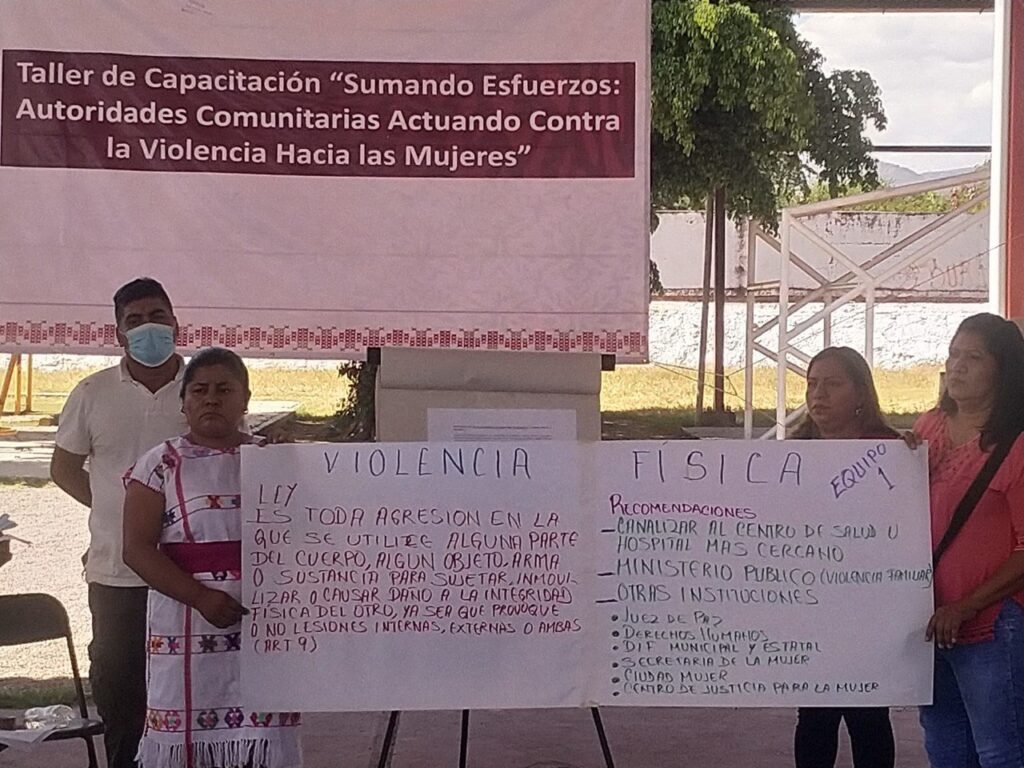 Taller de Capacitación “Sumando Esfuerzos:
Autoridades Comunitarias Actuando Contra
la Violencia Hacia las Mujeres”
VIOLENCIA
LEY
ES TODA AGRESION EN LA
QUE SE UTILIZE ALGUNA PARTE
DEL CUERPO, ALGUN OBJETO, ARMA
O SUSTANCIA PARA SUJETAR, INMOVI_
LIZAR O CAUSAR DAÑO A LA INTEGRIDAD
FÍSICA DEL OTRO, YA SER QUE PROVOQUE
O NO LESIONES INTERNAS, EXTERNAS O AMBAS
(ART 9)
FÍSICA
EQUIPO
1
RECOMENDACIONES
_CANALIZAR AL CENTRO DE SALUD U
HOSPITAL MAS CERCANO
_MINISTERIO PUBLICO (VIOLENCIA FAMILIAR)
_OTRAS INSTITUCIONES
• JUEZ DE PAZ
• DERECHOS HUMANOS
• DIF MUNICIPAL Y ESTATAL
• SECRETARIA DE LA MUJER
• CIUDAD MUJER
• CENTRO DE JUSTICIA PARA LA MUJER